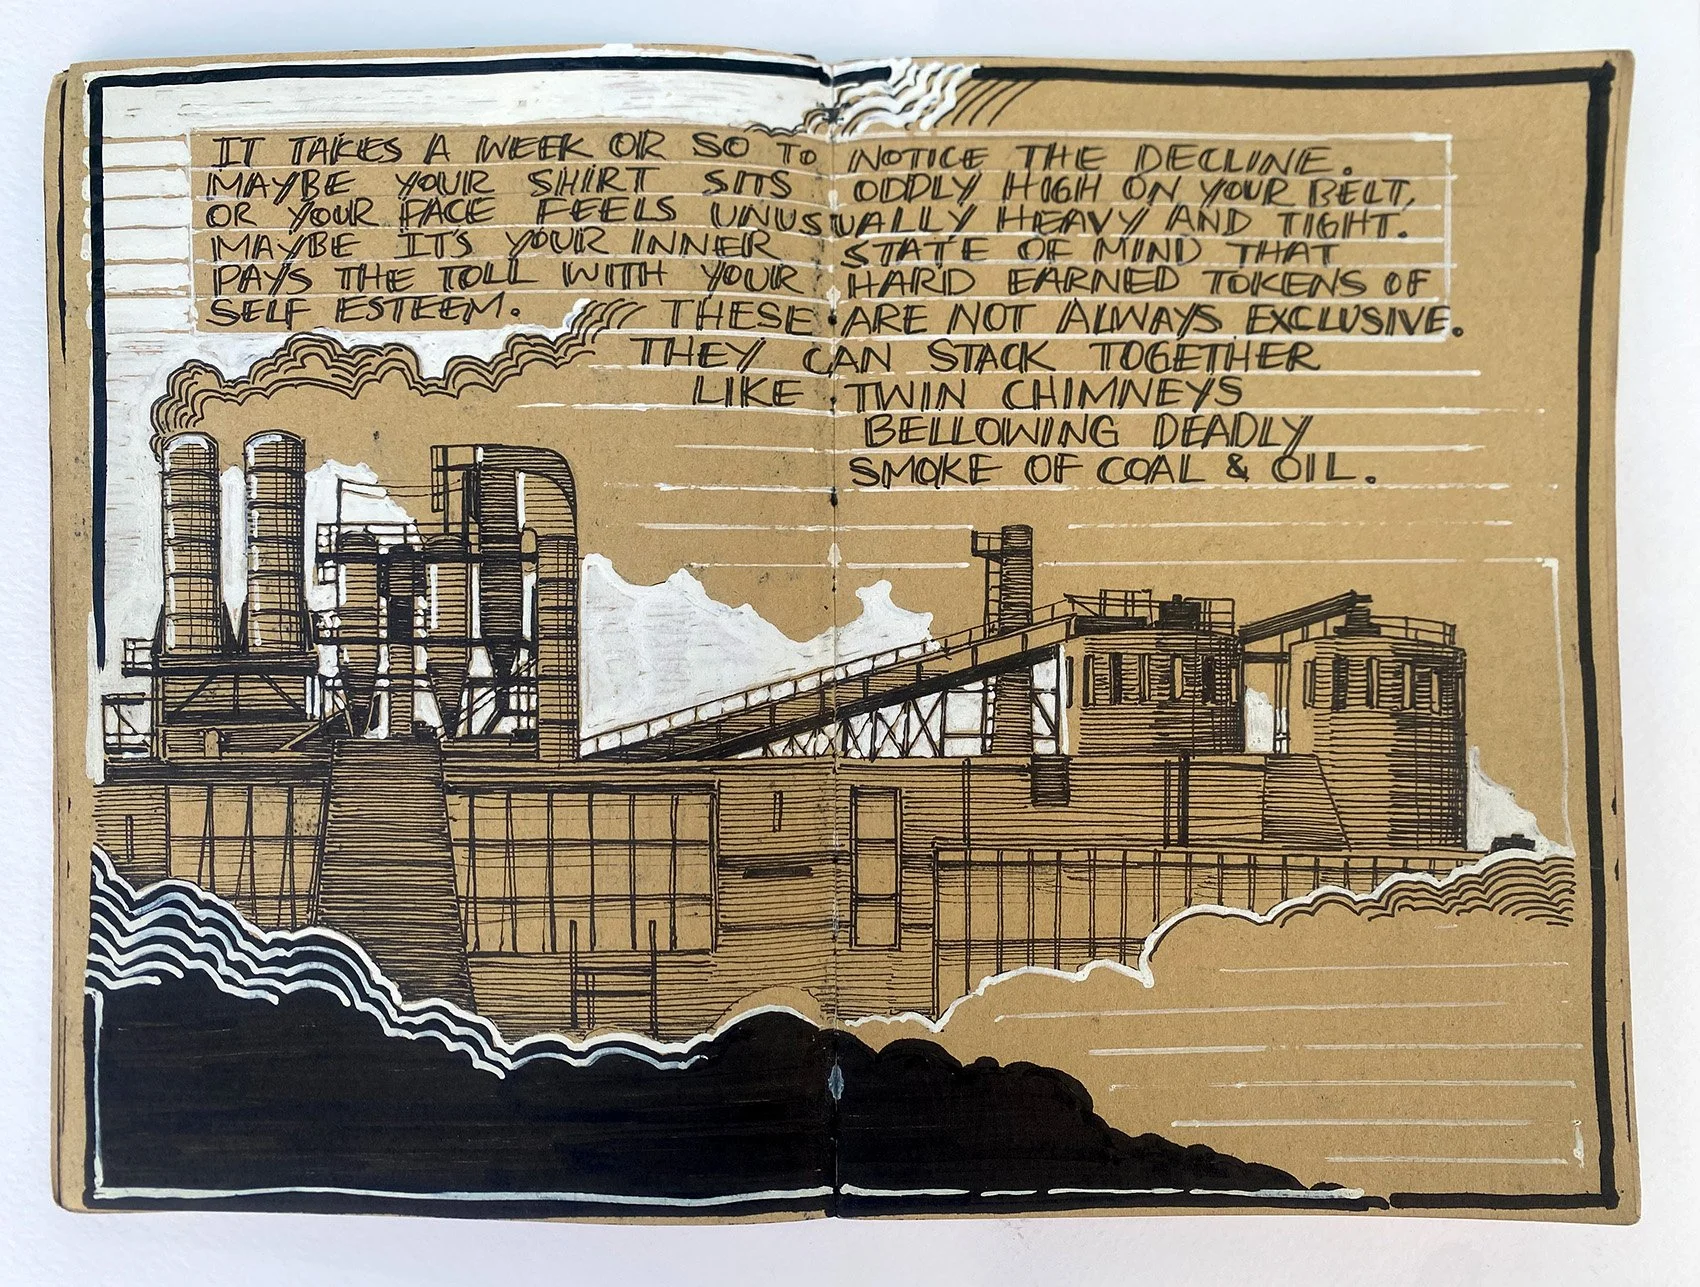 IT TAKES A WEEK OR SO TO NOTICE THE DECLINE.
MAYBE YOUR SHIRT SITS ODDLY HIGH ON YOUR BELT,
OR YOUR FACE FEELS UNUSUALLY HEAVY AND TIGHT.
MAYBE IT'S YOUR INNER STATE OF MIND THAT
PAYS THE TOLL WITH YOUR HARD EARNED TOKENS OF
SELF ESTEEM. THESE ARE NOT ALWAYS EXCLUSIVE.
THEY CAN STACK TOGETHER
LIKE TWIN CHIMNEYS
BELLOWING DEADLY
SMOKE OF COAL & OIL.